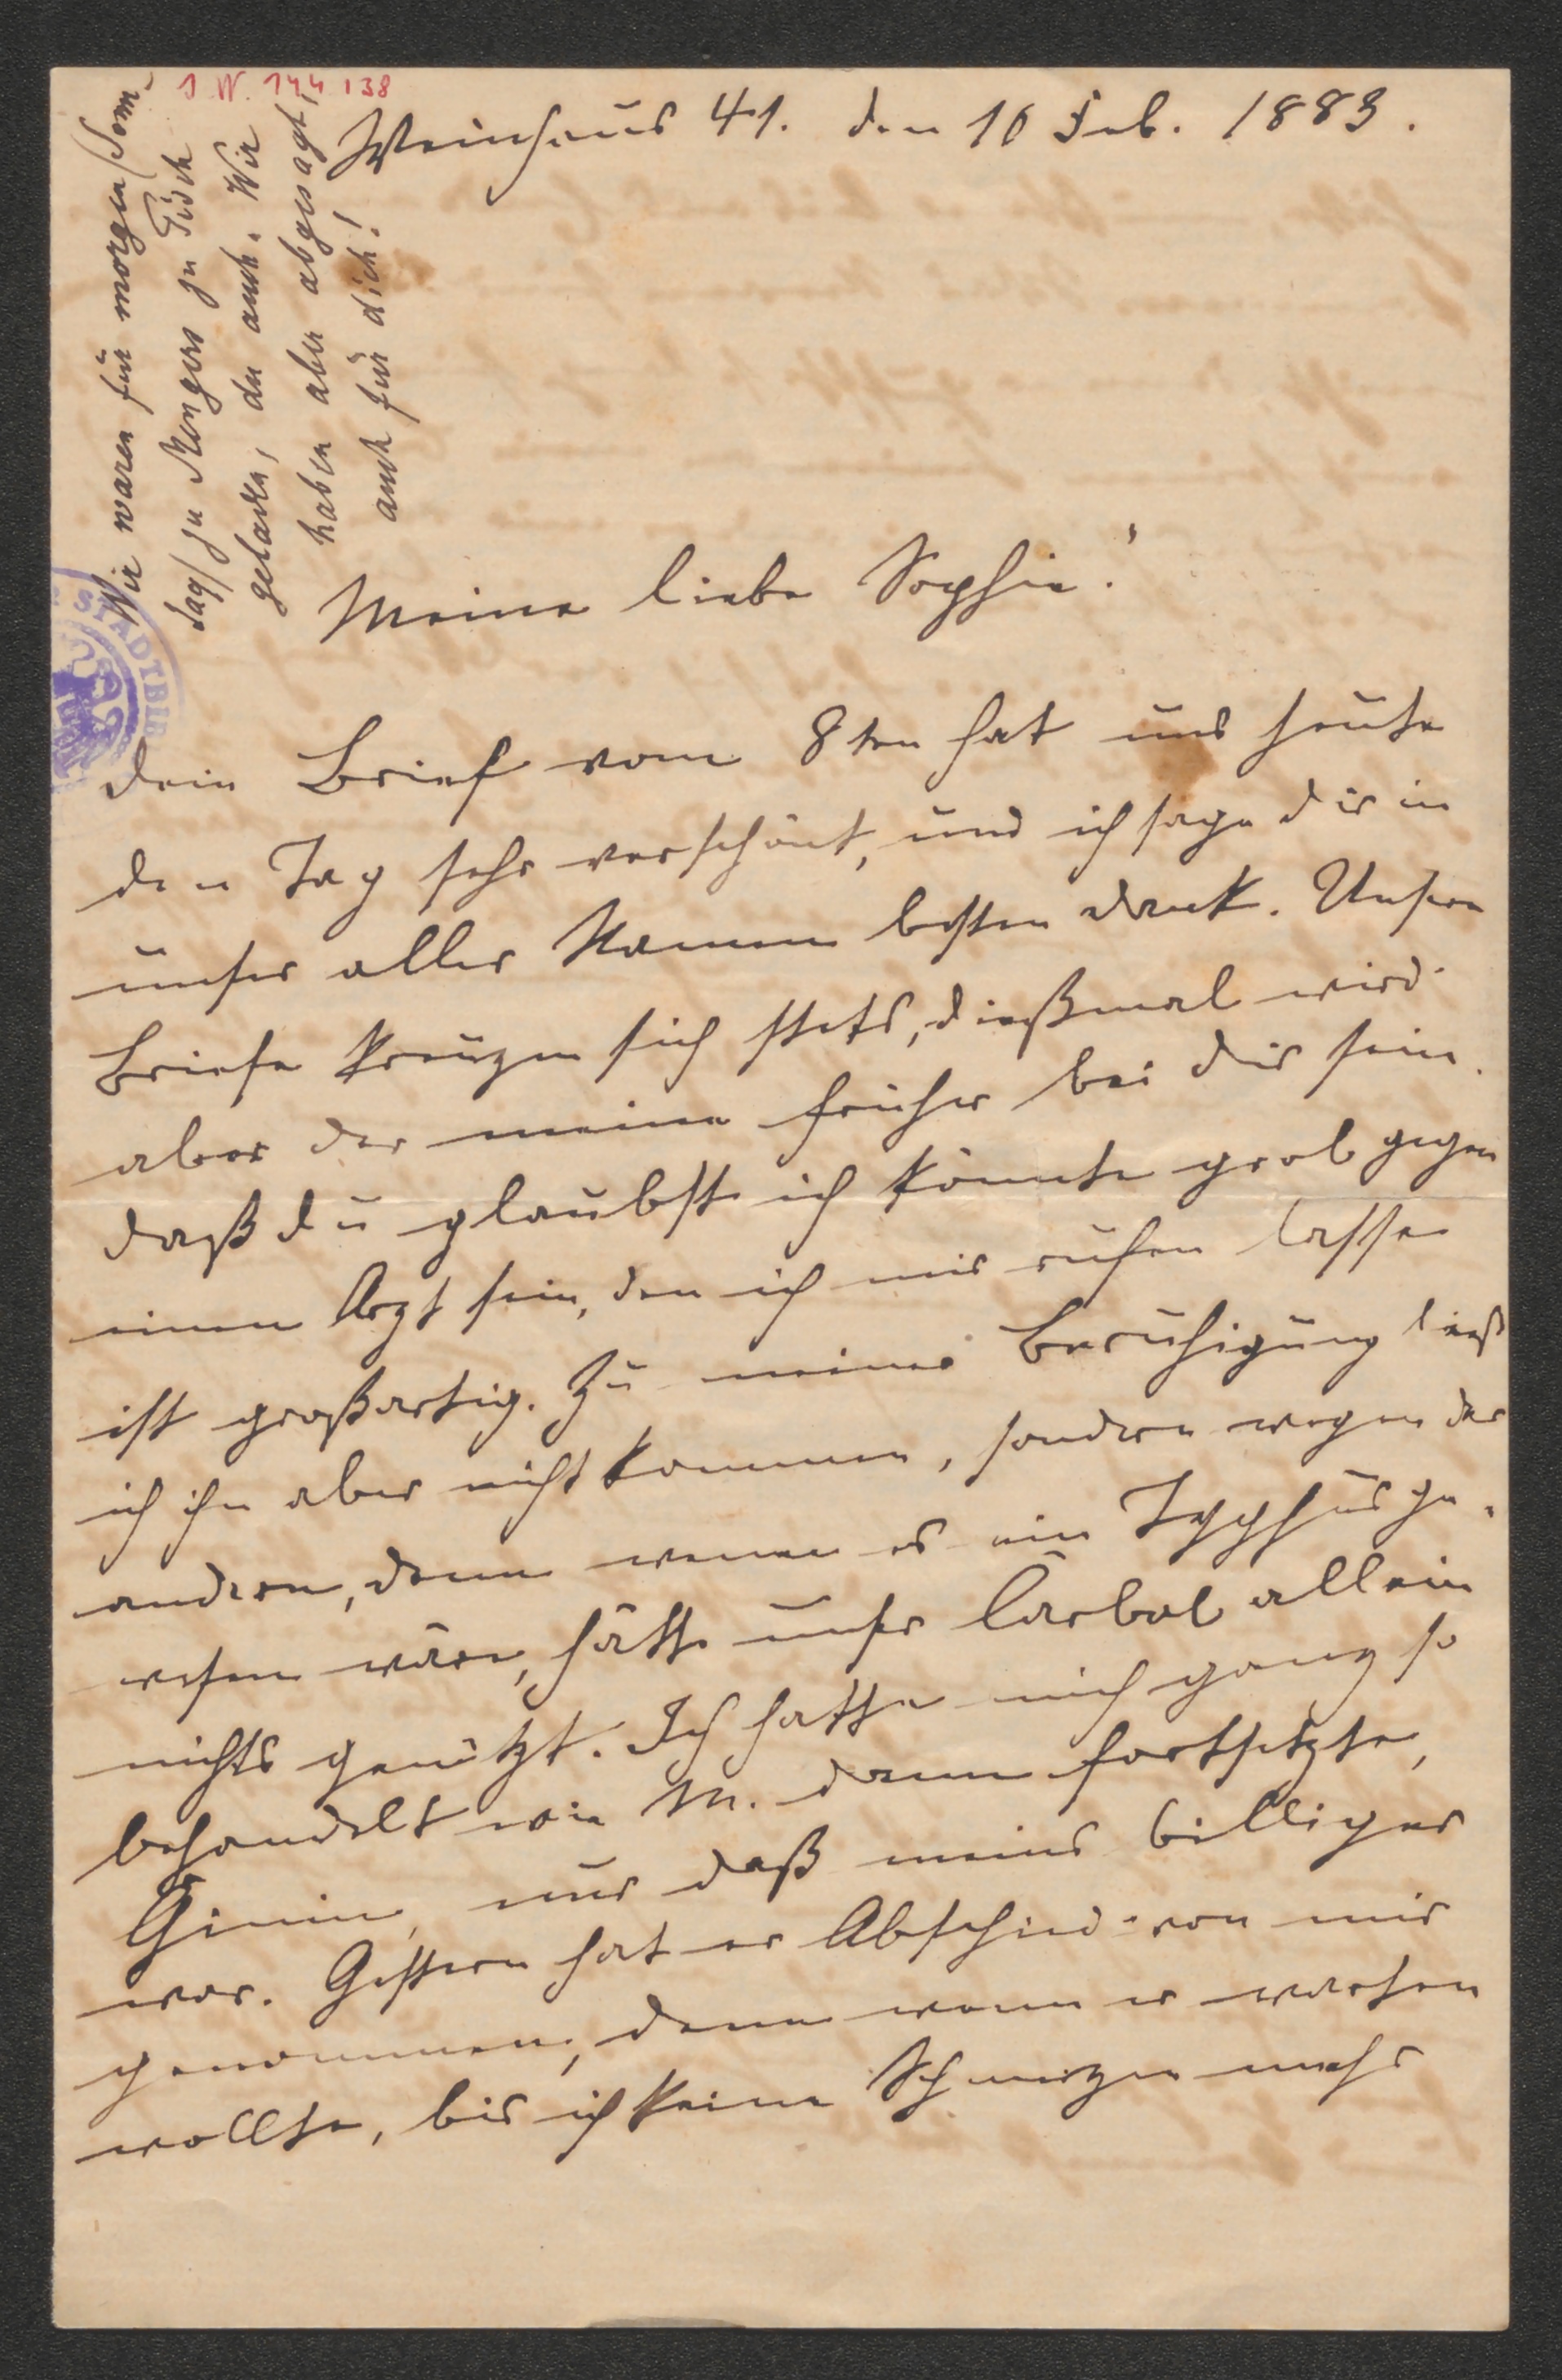 I N. 144138
Weinhaus 41. den 10 Feb. 1883.
Wir waren für morgen/Sonn-
tag/zu Mengers zu Tisch
geladen, du auch. Wir
haben aber abgesagt,
auch für dich!
Meine liebe Sophie!
Dein Brief vom 8ten hat uns heute
den Tag sehr verschönt, und ich sage dir in
unser aller Namen besten Dank. Unsere
Briefe kreuzen sich stets, dießmal wird
aber der meine früher bei dir sein.
Daß du glaubst ich könnte grob gegen
einen Arzt sein, den ich mir rufen lasse
ist großartig. Zu meiner Beruhigung ließ
ich ihn aber nicht kommen, sondern wegen der
andern, denn wenn es ein Typhus ge-
wesen wäre, hätte unser Carbol allein
nichts genützt. Ich hatte mich ganz so
behandelt wie M. dann fortsetzte,
nur daß meins billiger
war. Gestern hat er Abschied von mir
genommen, denn wenn er warten
wollte, bis ich keine Schmerzen mehr
STADTBI